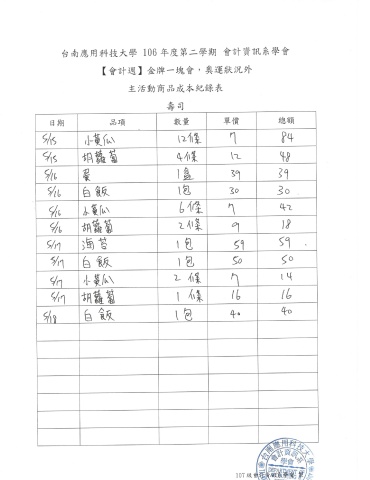 台南應用科技大學 106 年度第二學期 會計資訊系學會
【會計週】金牌一塊會，奧運狀況外
主活動商品成本紀錄表
壽司
日期 品項 數量 單價 總額
5/15 小黃瓜 12條 7 84
5/15 胡蘿蔔 4條 12 48
5/16 蛋 1盒 39 39
5/16 白飯 1包 30 30
5/16 小黃瓜 6條 7 42
5/16 胡蘿蔔 2條 9 18
5/17 海苔 1包 59 59
5/17 白飯 1包 50 50
5/17 小黃瓜 2條 7 14
5/17 胡蘿蔔 1條 16 16
5/18 白飯 1包 40 40
台南應用科技大學
會計資訊系
學會
107級會計資訊系學會 製